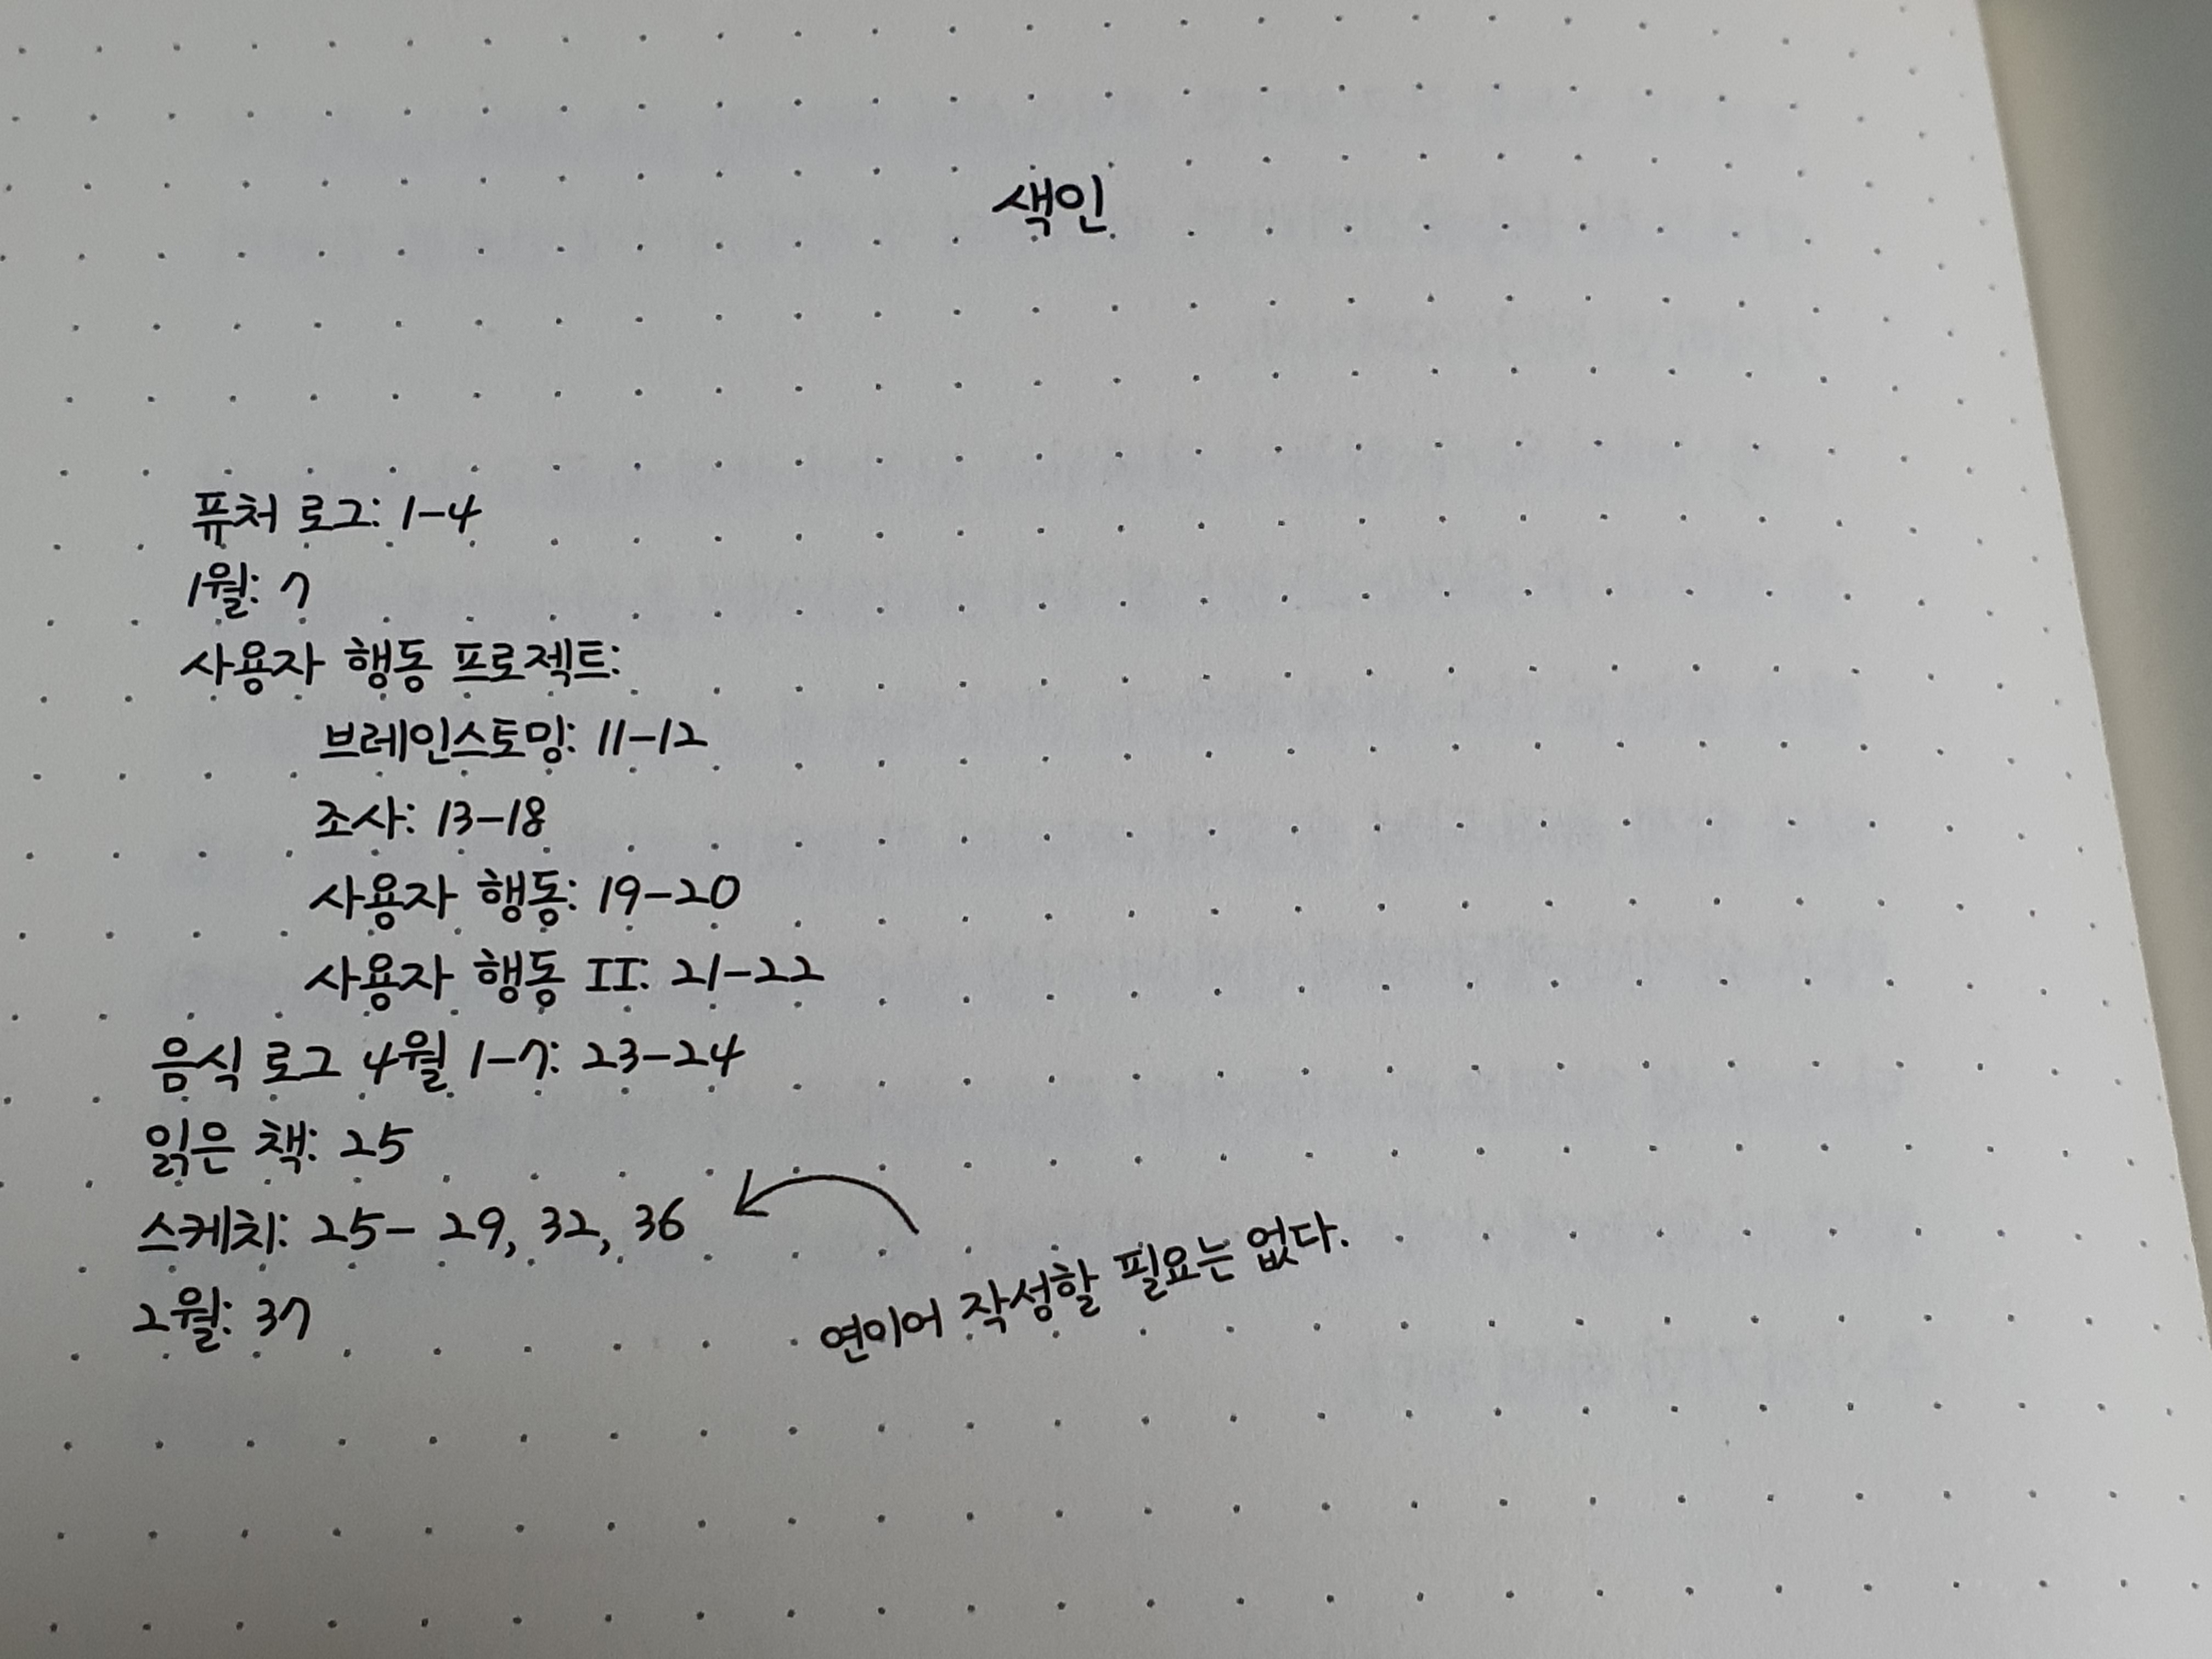 색인
퓨처 로그: 1-4
1월: 7
사용자 행동 프로젝트:
브레인스토밍: 11-12
조사: 13-18
사용자 행동: 19-20
사용자 행동 II: 21-22
음식 로그 4월 1-7: 23-24
읽은 책: 25
스케치: 25- 29, 32, 36
연이어 작성할 필요는 없다.
2월: 37